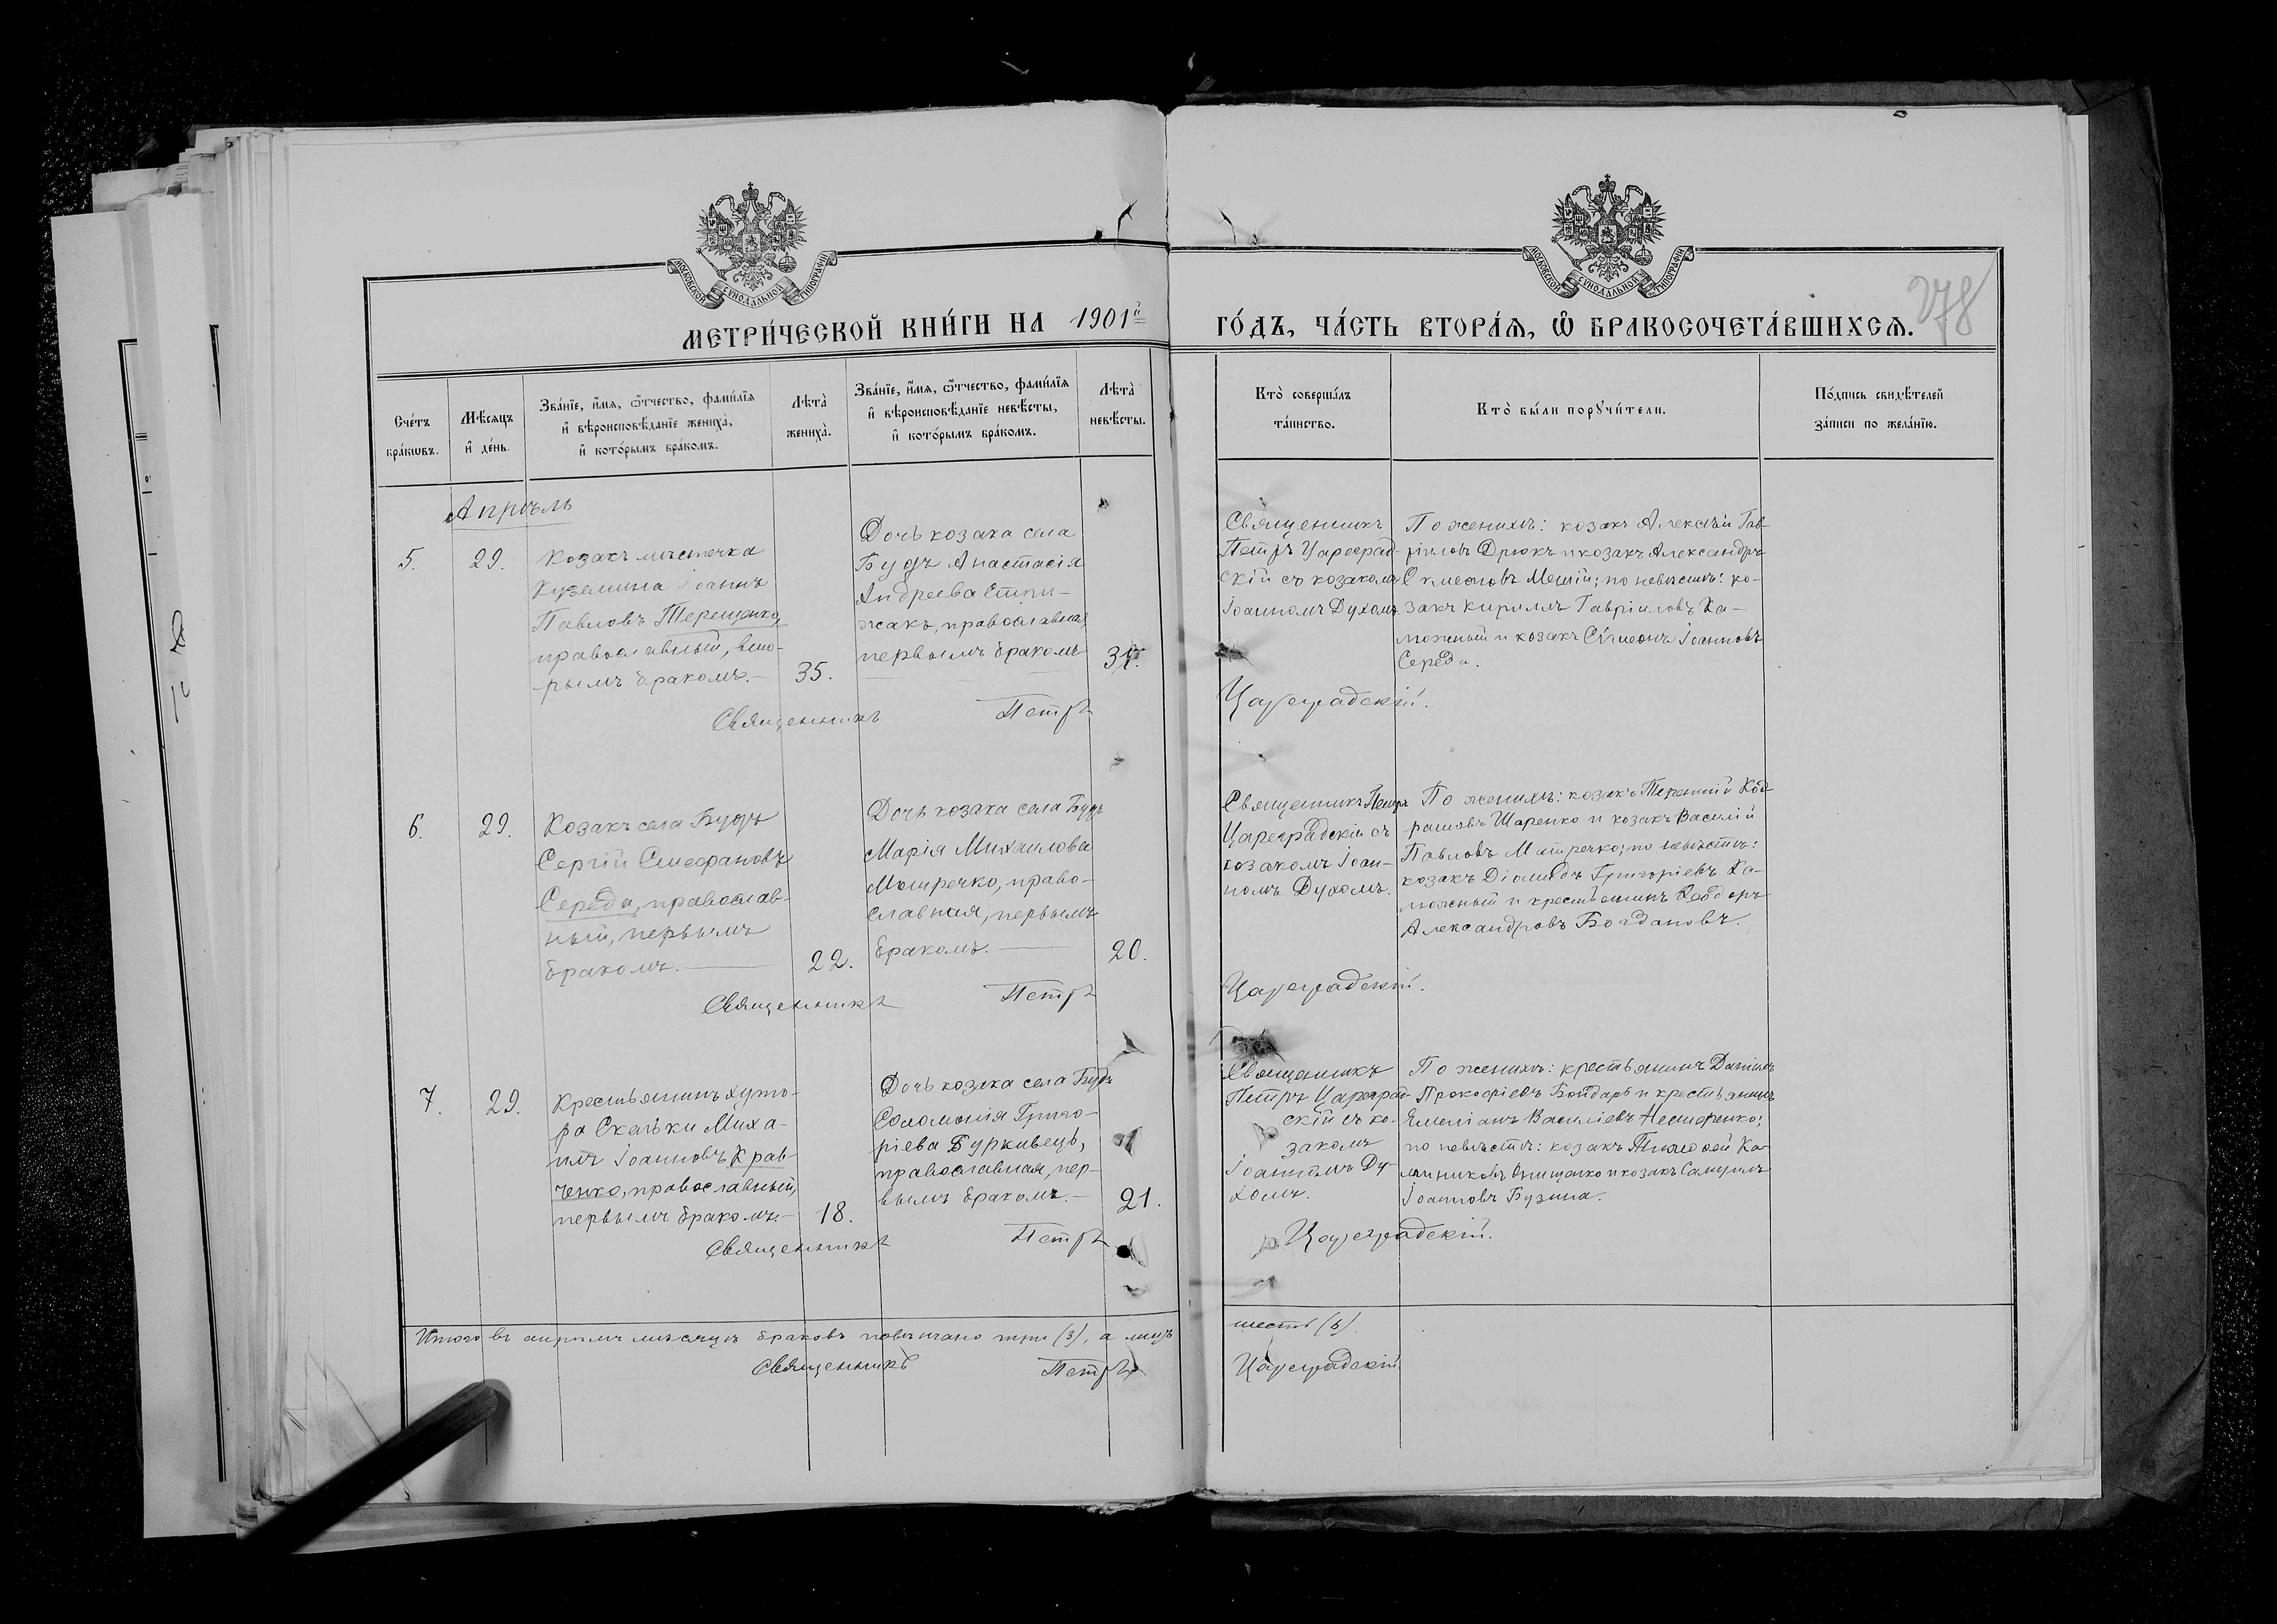 МОСКОВСКОЙ СѴНОДАЛЬНОЙ ТИПОГРАФІИ
МОСКОВСКОЙ СѴНОДАЛЬНОЙ ТИПОГРАФІИ
278
МЕТРИ́ЧЕСКОЙ КНИ́ГИ НА 1901й ГО́ДЪ, ЧА́СТЬ ВТОРА́Ѧ, Ѿ БРАКОСОЧЕТА́ВШИХСѦ.
Сче́тъ бра́кѡвъ.
Мѣ́сяцъ и҆ де́нь.
Зва́нїе, и҆́мѧ, ѻ҆́тчество, фами́лїѧ
и҆ вѣроисповѣ́данїе жениха̀,
и҆ кото́рымъ бра́комъ.
Лѣта̀
жениха̀.
Зва́нїе, и҆́мѧ, ѻ҆́тчество, фами́лїѧ
и҆ вѣроисповѣ́данїе невѣ́сты,
и҆ кото́рымъ бра́комъ.
Лѣта̀
невѣ́сты.
Кто̀ соверша́лъ
та́инство.
Кто̀ бы́ли порꙋчи́тели.
По́дпись свидѣ́телей
за́писи по жела́нїю.
Апрѣль
5.
29.
Козакъ мѣстечка
Куземина Іоаннъ
Павловъ Терещенко,
православный, вто-
рымъ бракомъ.-
35.
Дочь козака села
Будъ Анастасія
Андреева Стри-
жакъ, православная,
первымъ бракомъ
Священникъ
Петръ Цареград-
скій съ козакомъ
Іоанномъ Духомъ.
По женихѣ: козакъ Алексѣй Гав-
ріиловъ Дрюкъ и козакъ Александръ
Симеоновъ Мешій; по невѣстѣ: ко-
закъ Кириллъ Гавріиловъ Ка-
можный и козакъ Симеонъ Іоанновъ
Середа.
Священникъ Петръ Цареградскій.
6.
29.
Козакъ села Будъ
Сергій Стефановъ
Середа, православ-
ный, первымъ
бракомъ.
22.
Дочь козака села Будъ
Марія Михаилова
Мотречко, право-
славная, первымъ
бракомъ.
20.
Священникъ Петръ
Цареградскій съ
козакомъ Іоан-
номъ Духомъ.
По женихѣ: козакъ Терентій Код-
ратовъ Шаренко и козакъ Василій
Павловъ Матречко; по невѣстѣ:
козакъ Діомидъ Григоріевъ Ка-
можный и крестьянинъ Ѳеодоръ
Александровъ Богдановъ.
Священникъ Петръ Цареградскій.
7.
29.
Крестьянинъ хуто-
ра Скельки Миха-
илъ Іоанновъ Крав-
ченко, православный,
первымъ бракомъ.-
18.
Дочь козака села Будъ
Соломонія Григо-
ріева Буркивецъ,
православная, пер-
вымъ бракомъ.-
21.
Священникъ
Петръ Цареград-
скій съ ко-
закомъ
Іоанномъ Ду-
хомъ.
По женихѣ: крестьянинъ Даніилъ
Прокофіевъ Бондарь и крестьянинъ
Емеліанъ Василіевъ Нестеренко;
по невѣстѣ: козакъ Тимоѳей Ка-
линиковъ Онищенко и козакъ Самуилъ
Іоанновъ Бузина.
Священникъ Петръ Цареградскій.
Итого въ апрѣлѣ мѣсяцѣ браковъ повѣнчано три (3), а лицъ шесть (6).
Священникъ Петръ Цареградскій